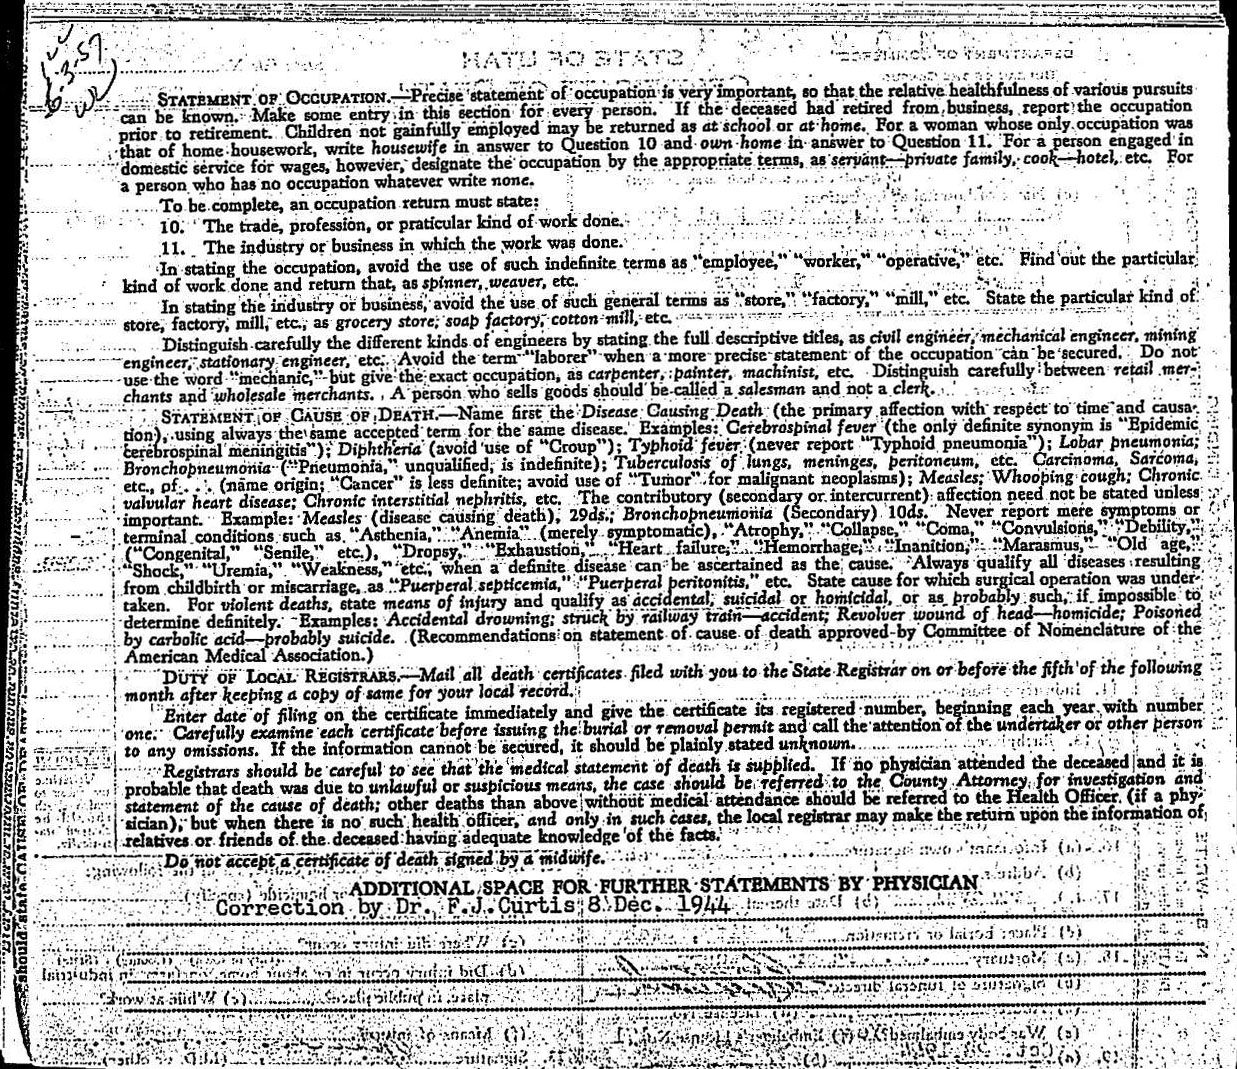 6-3-57
STATEMENT OF OCCUPATION.—Precise statement of occupation is very important, so that the relative healthfulness of various pursuits
can be known. Make some entry in this section for every person. If the deceased had retired from business, report the occupation
prior to retirement. Children not gainfully employed may be returned as at school or at home. For a woman whose only occupation was
that of home housework, write housewife in answer to Question 10 and own home in answer to Question 11. For a person engaged in
domestic service for wages, however, designate the occupation by the appropriate terms, as servant—private family, cook—hotel, etc. For
a person who has no occupation whatever write none.
To be complete, an occupation return must state:
10. The trade, profession, or praticular kind of work done.
11. The industry or business in which the work was done.
In stating the occupation, avoid the use of such indefinite terms as "employee," "worker," "operative," etc. Find out the particular
kind of work done and return that, as spinner, weaver, etc.
In stating the industry or business, avoid the use of such general terms as "store," "factory," "mill," etc. State the particular kind of
store, factory, mill, etc., as grocery store, soap factory, cotton mill, etc.
Distinguish carefully the different kinds of engineers by stating the full descriptive titles, as civil engineer, mechanical engineer, mining
engineer, stationary engineer, etc. Avoid the term "laborer" when a more precise statement of the occupation can be secured. Do not
use the word "mechanic," but give the exact occupation, as carpenter, painter, machinist, etc. Distinguish carefully between retail mer-
chants and wholesale merchants. A person who sells goods should be called a salesman and not a clerk.
STATEMENT OF CAUSE OF DEATH.—Name first the Disease Causing Death (the primary affection with respect to time and causa-
tion), using always the same accepted term for the same disease. Examples: Cerebrospinal fever (the only definite synonym is "Epidemic
cerebrospinal meningitis"); Diphtheria (avoid use of "Croup"); Typhoid fever (never report "Typhoid pneumonia"); Lobar pneumonia;
Bronchopneumonia ("Pneumonia," unqualified, is indefinite); Tuberculosis of lungs, meninges, peritoneum, etc. Carcinoma, Sarcoma,
etc., of . . . (name origin; "Cancer" is less definite; avoid use of "Tumor" for malignant neoplasms); Measles; Whooping cough; Chronic
valvular heart disease; Chronic interstitial nephritis, etc. The contributory (secondary or intercurrent) affection need not be stated unless
important. Example: Measles (disease causing death), 29ds.; Bronchopneumonia (Secondary) 10ds. Never report mere symptoms or
terminal conditions such as "Asthenia," "Anemia" (merely symptomatic), "Atrophy," "Collapse," "Coma," "Convulsions," "Debility,"
("Congenital," "Senile," etc.), "Dropsy," "Exhaustion," "Heart failure," "Hemorrhage," "Inanition," "Marasmus," "Old age,"
"Shock," "Uremia," "Weakness," etc., when a definite disease can be ascertained as the cause. Always qualify all diseases resulting
from childbirth or miscarriage, as "Puerperal septicemia," "Puerperal peritonitis," etc. State cause for which surgical operation was under-
taken. For violent deaths, state means of injury and qualify as accidental, suicidal or homicidal, or as probably such, if impossible to
determine definitely. Examples: Accidental drowning; struck by railway train—accident; Revolver wound of head—homicide; Poisoned
by carbolic acid—probably suicide. (Recommendations on statement of cause of death approved by Committee of Nomenclature of the
American Medical Association.)
DUTY OF LOCAL REGISTRARS.—Mail all death certificates filed with you to the State Registrar on or before the fifth of the following
month after keeping a copy of same for your local record.
Enter date of filing on the certificate immediately and give the certificate its registered number, beginning each year with number
one. Carefully examine each certificate before issuing the burial or removal permit and call the attention of the undertaker or other person
to any omissions. If the information cannot be secured, it should be plainly stated unknown.
Registrars should be careful to see that the medical statement of death is supplied. If no physician attended the deceased and it is
probable that death was due to unlawful or suspicious means, the case should be referred to the County Attorney for investigation and
statement of the cause of death; other deaths than above without medical attendance should be referred to the Health Officer (if a phy-
sician), but when there is no such health officer, and only in such cases, the local registrar may make the return upon the information of
relatives or friends of the deceased having adequate knowledge of the facts.
Do not accept a certificate of death signed by a midwife.
ADDITIONAL SPACE FOR FURTHER STATEMENTS BY PHYSICIAN
Correction by Dr. F.J. Curtis 8 Dec. 1944